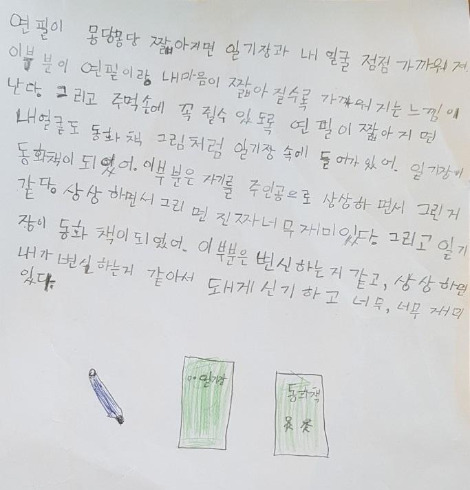 연필이 몽당몽당 짧아지면 일기장과 내 얼굴 점점 가까워져
이부분이 연필이랑 내마음이 짧아 질수록 가까워지는 느낌이
난다. 그리고 주먹손에 꼭 쥘수 있도록 연필이 짧아 지면
내얼굴도 동화 책 그림처럼 일기장 속에 들어가 있어. 일기장이
동화책이 되었어. 이부분은 자기를 주인공으로 상상하 면서 그린거
같다. 상상 하면서 그리 면 진짜 너무 재미있다. 그리고 일기
장이 동화 책이 되었어. 이부분은 변신하는거 같고, 상상 하면
내가 변신하는거 같아서 되게 신기 하고 너무, 너무 재미
있다.
일기장
동화책